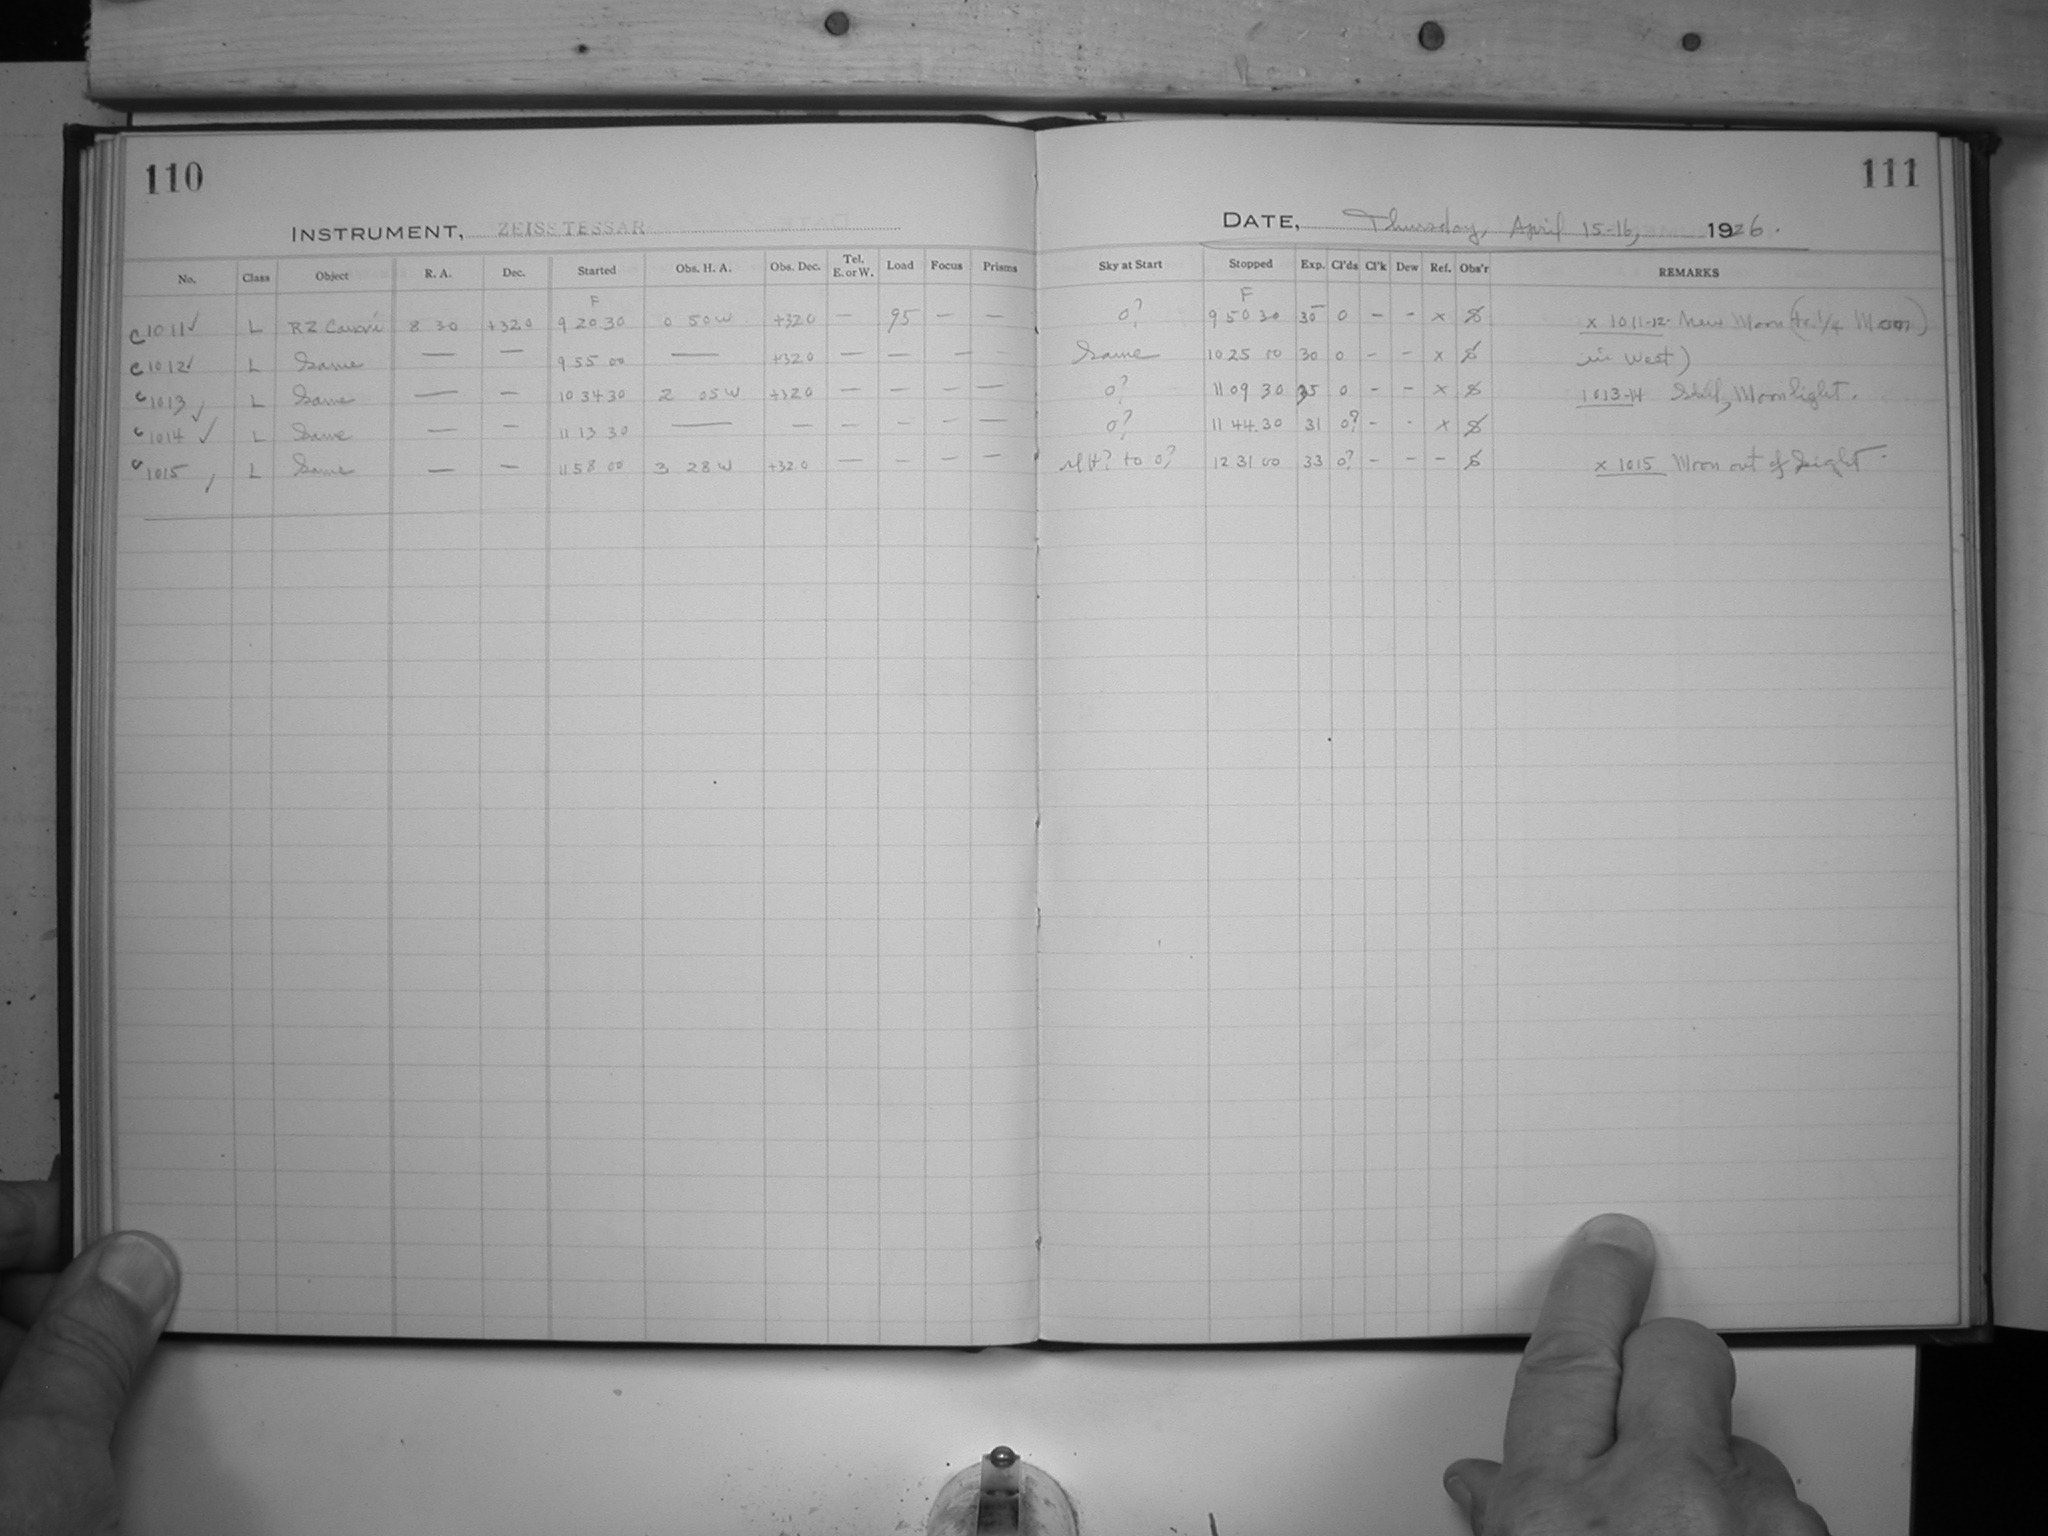 110
INSTRUMENT, ZEISS TESSAR
No. Class Object R. A. Dec. Started Obs. H. A. Obs. Dec. Tel. E. or W. Load Focus Prisms
F
C 1011 ✓ L RZ Cancri 8 30 +32.0 9 20 30 0 50 W +32.0 — 95 — —
C 1012 ✓ L Same — — 9 55 00 — +32.0 — — — -
C 1013 ✓ L Same — — 10 34 30 2 05 W +32.0 — — — —
C 1014 ✓ L Same — — 11 13 30 — — — — — —
C 1015 L Same — — 11 58 00 3 28 W +32.0 — — — —
111
DATE, Thursday, April 15-16, 1926.
Sky at Start Stopped Exp. Cl'ds Cl'k Dew Ref. Obs'r REMARKS
F
0? 9 50 30 30 0 - - x x 1011-12- New Moon (to 1/4 Moon
Same 10 25 00 30 0 - - x in West)
0? 11 09 30 35 0 - - x 1013-14 Moonlight.
0? 11 44 30 31 0? - - x
to 0? 12 31 00 33 0? - - - x 1015 Moon out of Sight.